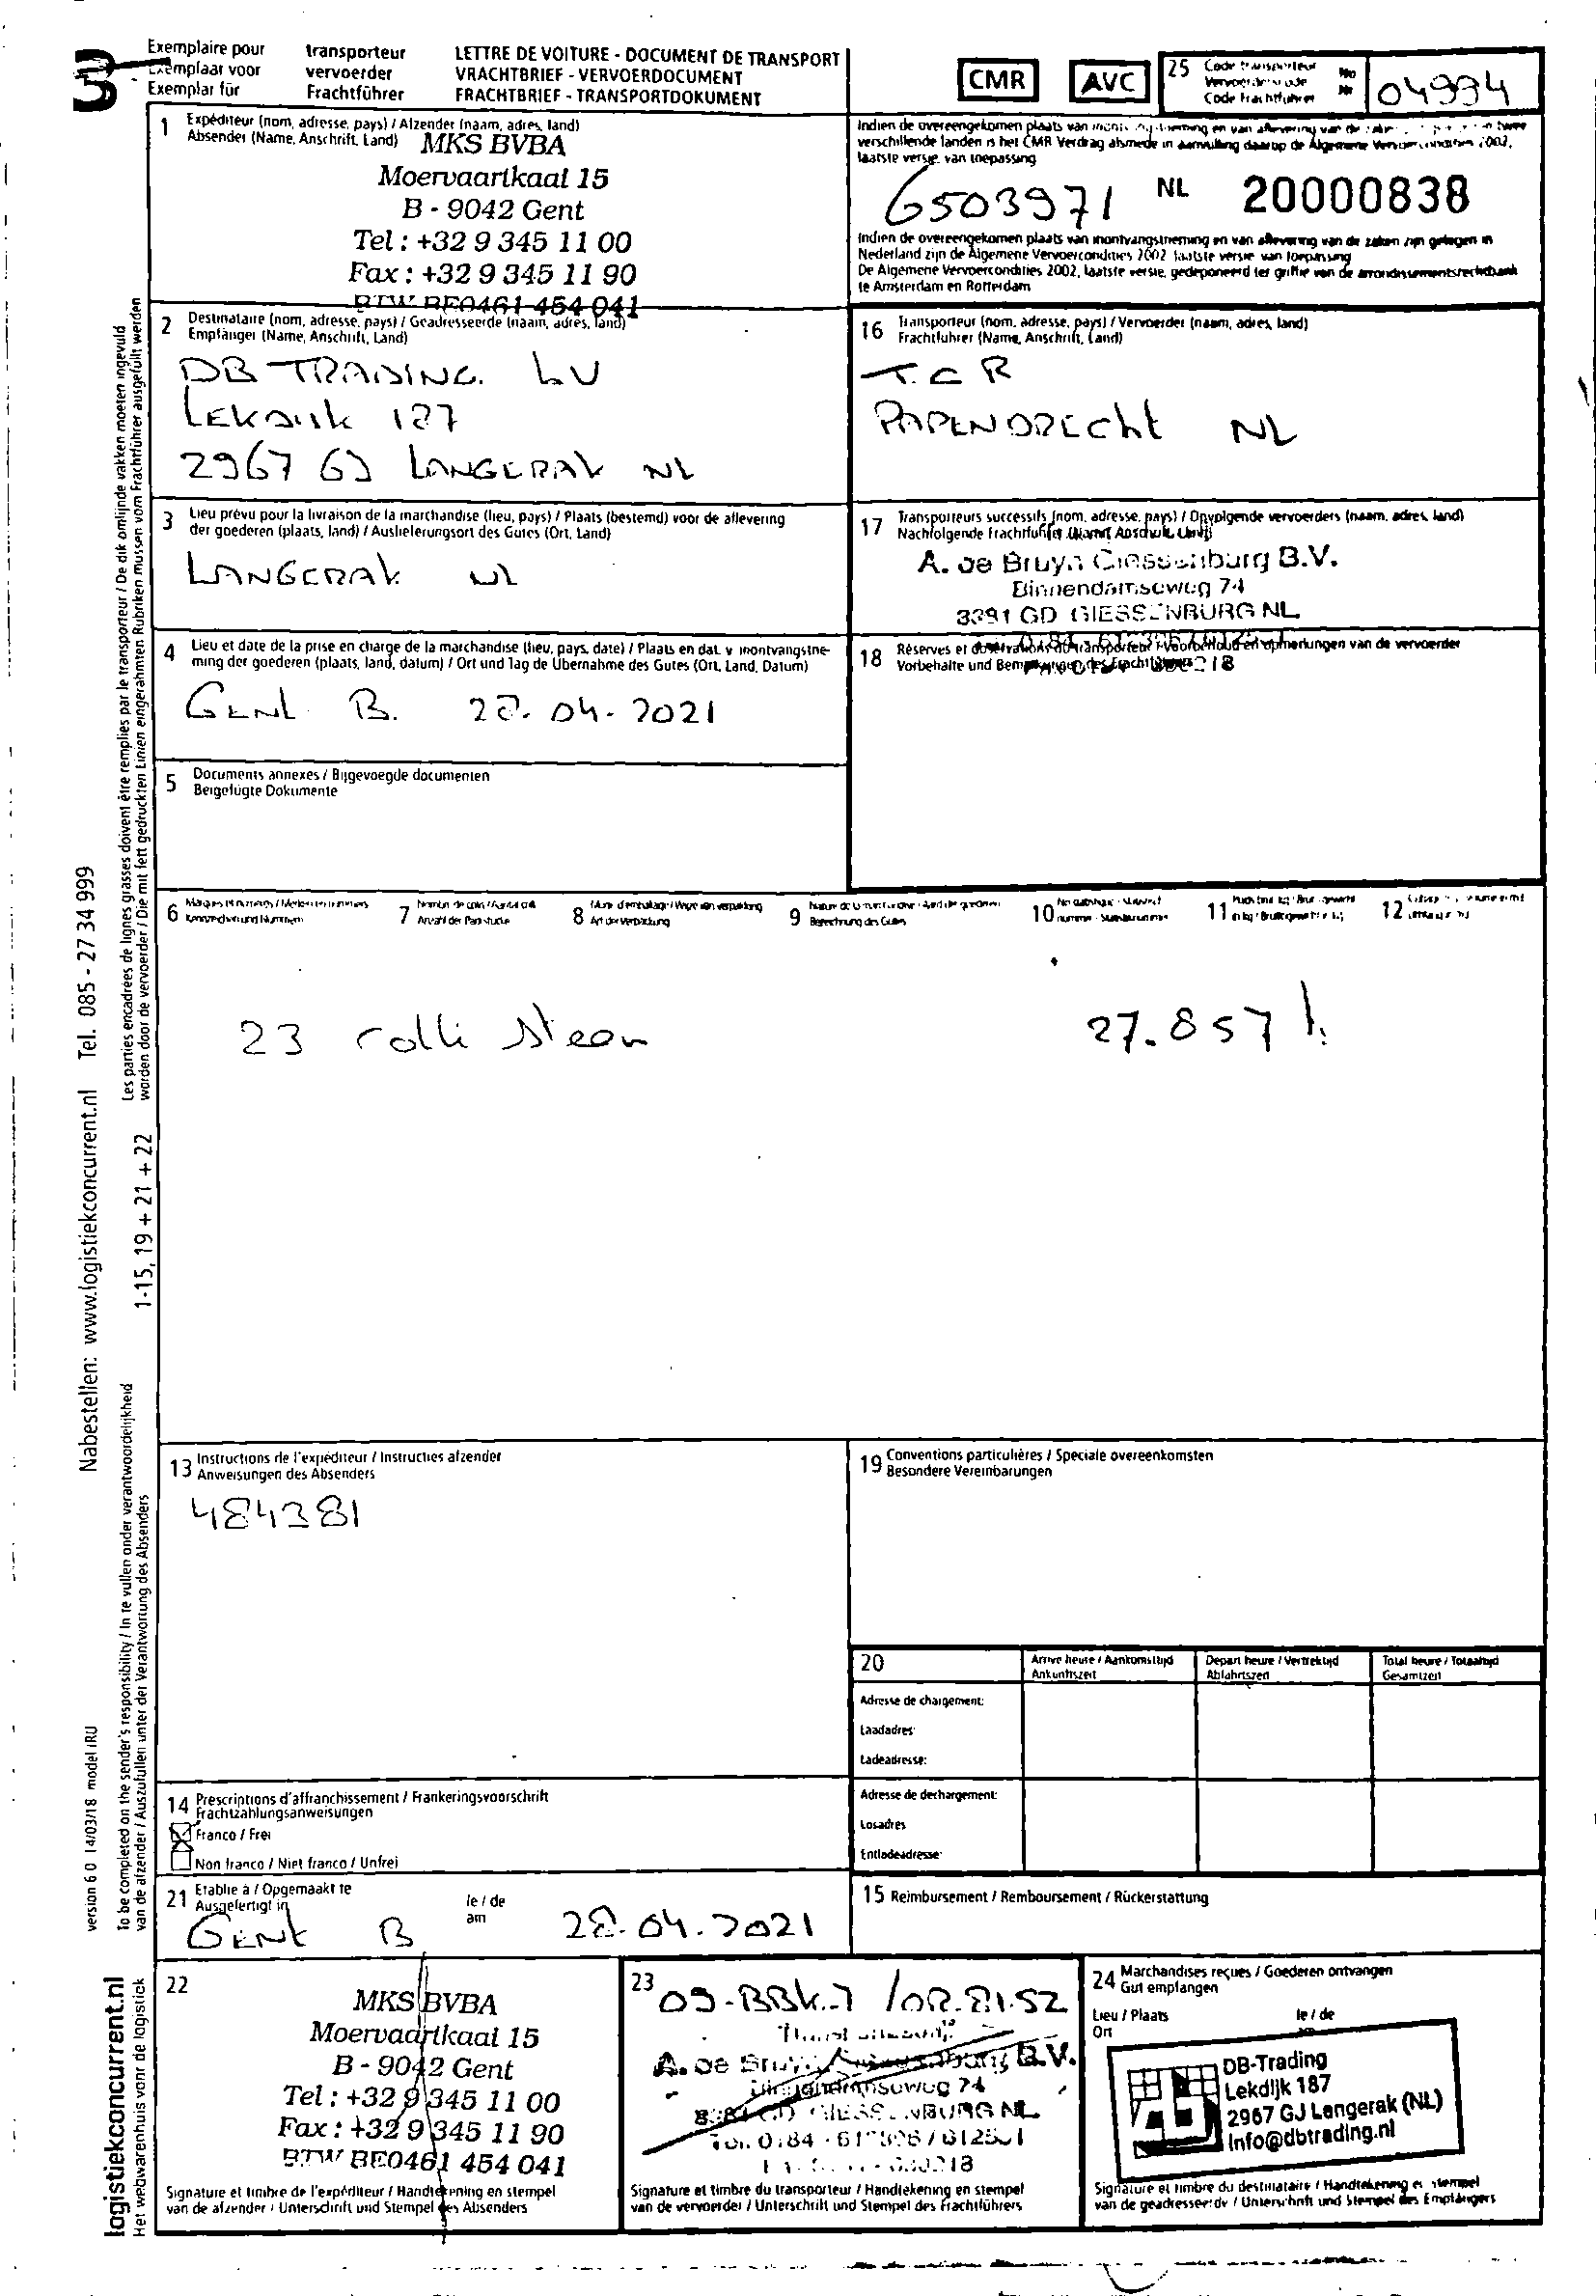 3
Exemplaire pour transporteur
Exemplaar voor vervoerder
Exemplar für Frachtführer
LETTRE DE VOITURE - DOCUMENT DE TRANSPORT
VRACHTBRIEF - VERVOERDOCUMENT
FRACHTBRIEF - TRANSPORTDOKUMENT
CMR
AVC
25 Code transporteur
Code Frachtführer
04994
1 Expéditeur (nom, adresse, pays) / Afzender (naam, adres, land)
Absender (Name, Anschrift, Land)
MKS BVBA
Moervaartkaai 15
B - 9042 Gent
Tel : +32 9 345 11 00
Fax : +32 9 345 11 90
BTW BE0461 454 041
verschillende landen is het CMR Verdrag alsmede in aanvulling daarop de Algemene Vervoercondities 2002,
laatste versie, van toepassing
6503971 NL 20000838
Indien de overeengekomen plaats van inontvangstneming en van aflevering van de zaken zijn gelegen in
Nederland zijn de Algemene Vervoercondities 2002 laatste versie van toepassing
De Algemene Vervoercondities 2002, laatste versie, gedeponeerd ter griffie van de arrondissementsrechtbank
te Amsterdam en Rotterdam
2 Destinataire (nom, adresse, pays) / Geadresseerde (naam, adres, land)
Empfänger (Name, Anschrift, Land)
DB TRADING
LEKDIJK 187
2967 GJ LANGERAK NL
16 Transporteur (nom, adresse, pays) / Vervoerder (naam, adres, land)
Frachtführer (Name, Anschrift, Land)
T.C R
PAPENDRECHT NL
3 Lieu prévu pour la livraison de la marchandise (lieu, pays) / Plaats (bestemd) voor de aflevering
der goederen (plaats, land) / Auslieferungsort des Gutes (Ort, Land)
LANGERAK NL
17 Transporteurs successifs (nom, adresse, pays) / Opvolgende vervoerders (naam, adres, land)
Nachfolgende Frachtführer (Name, Anschrift, Land)
A. de Bruyn Giessenburg B.V.
Binnendamseweg 74
3381 GD GIESSENBURG NL
4 Lieu et date de la prise en charge de la marchandise (lieu, pays, date) / Plaats en dat. v. inontvangstne-
ming der goederen (plaats, land, datum) / Ort und Tag de Übernahme des Gutes (Ort, Land, Datum)
GENT B. 28.04.2021
18 Réserves et observations du transporteur / Voorbehoud en opmerkingen van de vervoerder
Vorbehalte und Bemerkungen des Frachtführers
5 Documents annexes / Bijgevoegde documenten
Beigefügte Dokumente
6 7 8 9 10 11 12
23 colli steen 27.857
13 Instructions de l'expéditeur / Instructies afzender
Anweisungen des Absenders
484381
19 Conventions particulières / Speciale overeenkomsten
Besondere Vereinbarungen
20
Arrive heure / Aankomsttijd
Ankunftszeit
Depart heure / Vertrektijd
Abfahrtszeit
Total heure / Totaaltijd
Gesamtzeit
Adresse de chargement:
Laadadres:
Ladeadresse:
Adresse de dechargement:
Losadres
Entladeadresse:
14 Prescriptions d'affranchissement / Frankeringsvoorschrift
Frachtzahlungsanweisungen
Franco / Frei
Non franco / Niet franco / Unfrei
21 Etablie à / Opgemaakt te
Ausgefertigt in
le / de
am
GENT B 28.04.2021
15 Reimbursement / Remboursement / Rückerstattung
22
MKS BVBA
Moervaartkaai 15
B - 9042 Gent
Tel : +32 9 345 11 00
Fax : +32 9 345 11 90
BTW BE0461 454 041
Signature et timbre de l'expéditeur / Handtekening en stempel
van de afzender / Unterschrift und Stempel des Absenders
23
09-BBK-7
A. de Bruyn Giessenburg B.V.
Binnendamseweg 74
3381 GD GIESSENBURG NL
Signature et timbre du transporteur / Handtekening en stempel
van de vervoerder / Unterschrift und Stempel des Frachtführers
24 Marchandises reçues / Goederen ontvangen
Gut empfangen
Lieu / Plaats
Ort
le / de
am
DB-Trading
Lekdijk 187
2967 GJ Langerak (NL)
info@dbtrading.nl
Signature et timbre du destinataire / Handtekening en stempel
van de geadresseerde / Unterschrift und Stempel des Empfängers
Les parties encadrées de lignes grasses doivent être remplies par le transporteur / De dik omlijnde vakken moeten ingevuld
worden door de vervoerder / Die mit fett gedruckten Linien eingerahmten Rubriken müssen vom Frachtführer ausgefüllt werden
Nabestellen: www.logistiekconcurrent.nl Tel. 085 - 27 34 999
1-15, 19 + 21 + 22
To be completed on the sender's responsibility / In te vullen onder verantwoordelijkheid
van de afzender / Auszufüllen unter der Verantwortung des Absenders
version 6 0 14/03/18 model IRU
logistiekconcurrent.nl
Het webwarenhuis voor de logistiek